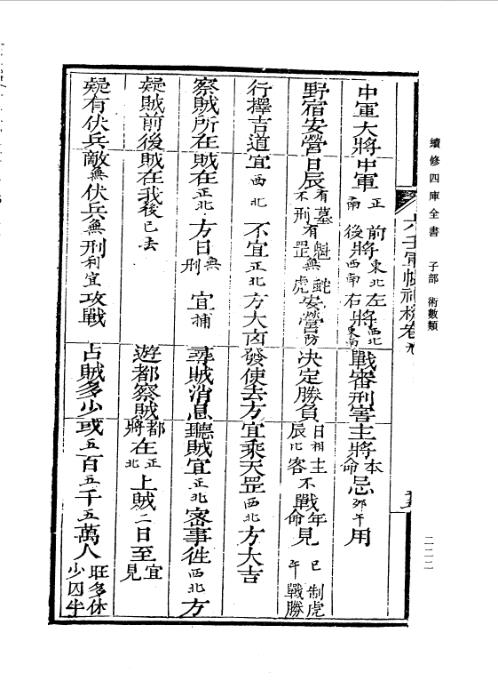 續修四庫全書 子部 術數類
二二二
六壬軍帳神機卷
中軍大將中軍正南前將東北左將西北後將西南右將東南戰審刑害主將本命忌卯午用
野宿安營日辰有墓不刑有魁罡無蛇虎安營防決定勝負日相主辰比客不戰年命見巳午制虎戰勝
行擇吉道宜西北不宜正北方大凶發使去方宜乘天罡西北方大吉
察賊所在賊在正北方日無刑宜捕尋賊消息聽賊宜正北密事徃西北方
疑賊前後賊在我後已去遊都察賊都將在正北上賊二日至宜見
疑有伏兵敵無伏兵無刑利宜攻戰占賊多少或五百五千五萬人旺多休少囚半